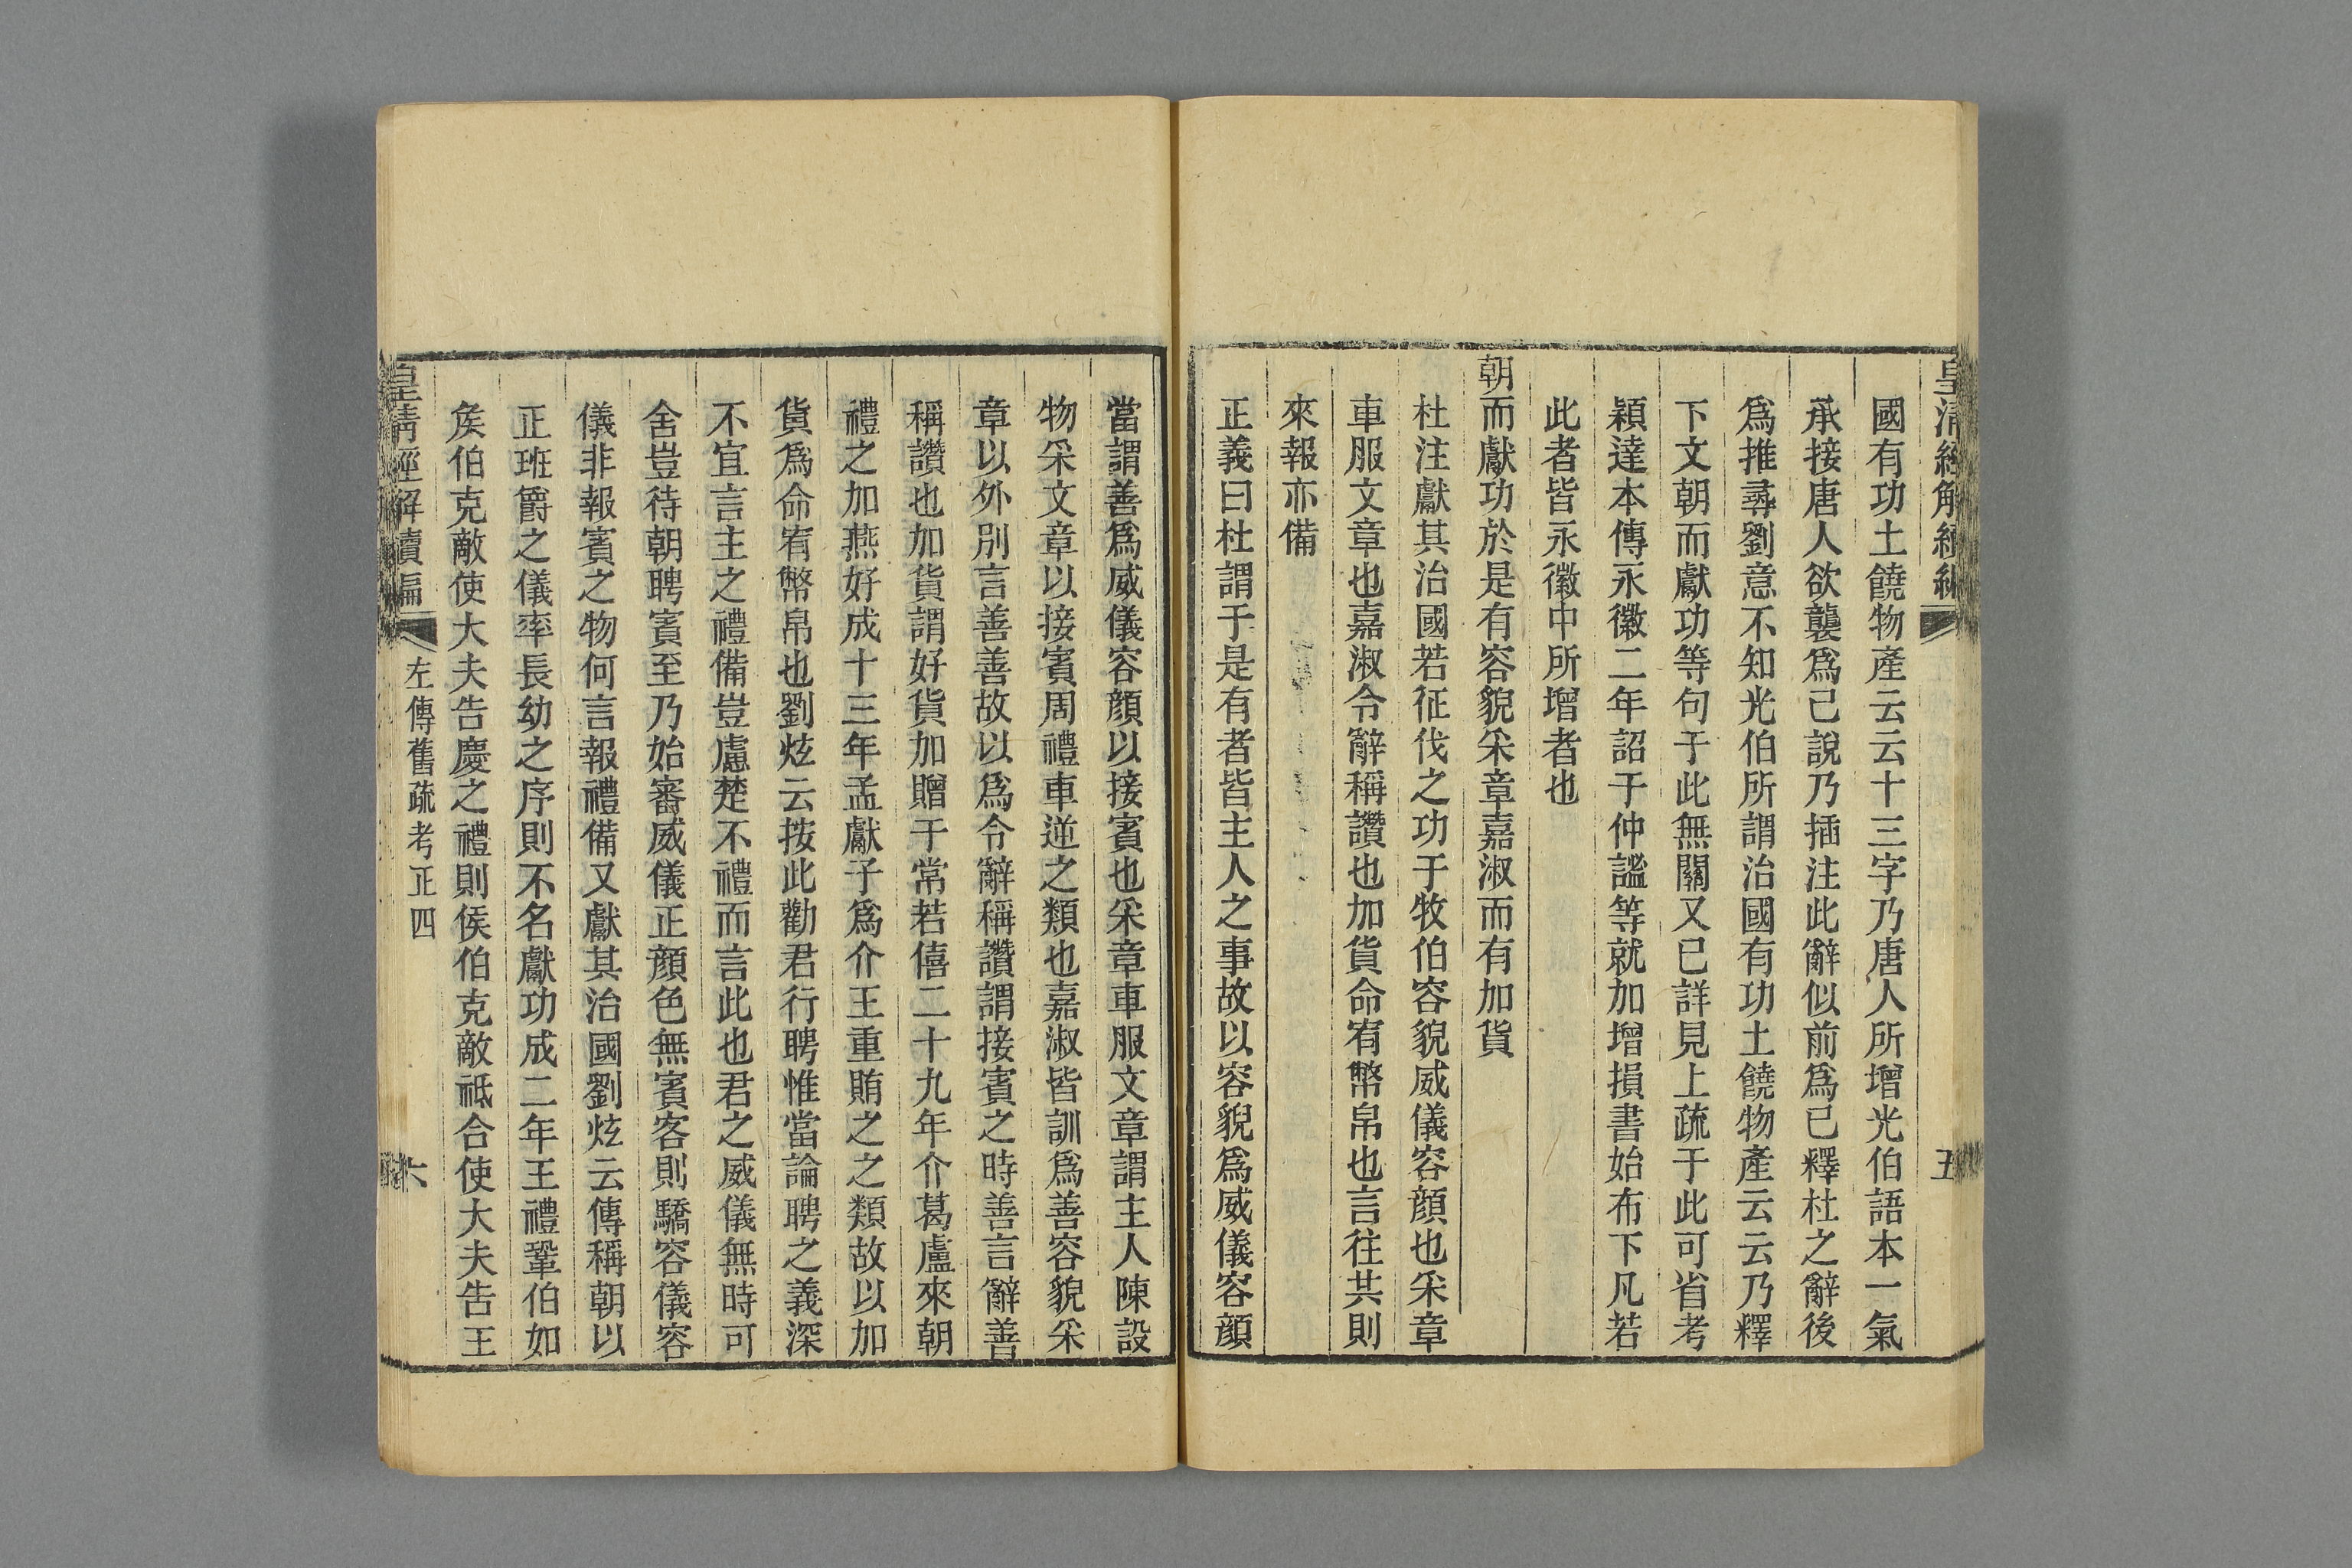 皇清經解續編
五
國有功土饒物產云云十三字乃唐人所增光伯語本一氣
承接唐人欲襲爲己說乃插注此辭似前爲已釋杜之辭後
爲推尋劉意不知光伯所謂治國有功土饒物產云云乃釋
下文朝而獻功等句于此無關又已詳見上疏于此可省考
穎達本傳永徽二年詔于仲謐等就加增損書始布下凡若
此者皆永徽中所增者也
朝而獻功於是有容貌采章嘉淑而有加貨
杜注獻其治國若征伐之功于牧伯容貌威儀容顏也采章
車服文章也嘉淑令辭稱讚也加貨命宥幣帛也言往共則
來報亦備
正義曰杜謂于是有者皆主人之事故以容貌爲威儀容顏
當謂善爲威儀容顏以接賓也采章車服文章謂主人陳設
物采文章以接賓周禮車逆之類也嘉淑皆訓爲善容貌采
章以外別言善善故以爲令辭稱讚謂接賓之時善言辭善
稱讚也加貨謂好貨加贈于常若僖二十九年介葛盧來朝
禮之加燕好成十三年孟獻子爲介王重賄之之類故以加
貨爲命宥幣帛也劉炫云按此勸君行聘惟當論聘之義深
不宜言主之禮備豈慮楚不禮而言此也君之威儀無時可
舍豈待朝聘賓至乃始審威儀正顏色無賓客則驕容儀容
儀非報賓之物何言報禮備又獻其治國劉炫云傳稱朝以
正班爵之儀率長幼之序則不名獻功成二年王禮鞏伯如
矦伯克敵使大夫告慶之禮則侯伯克敵祗合使大夫告王
皇淸經解續編
左傳舊疏考正四
六